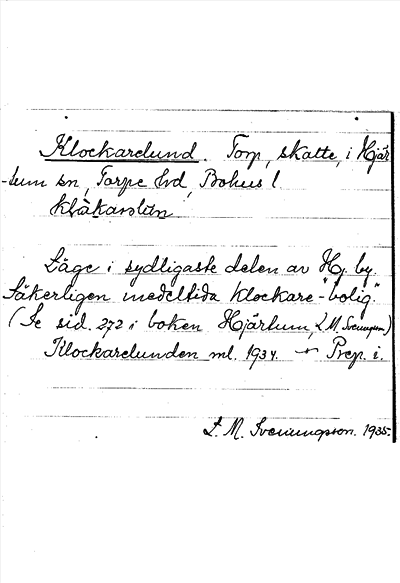 Klockarelund. Torp, skatte, i Hjär
-tum sn, Torpe hd, Bohus l.
Läge i sydligaste delen av Hj. by.
Säkerligen medeltida klockare-"bolig."
(Se sid. 272 i boken Hjärtum, L. M. Svenungson)
Klockarelunden ml. 1934. Prep. i.
L. M. Svenungsson. 1935.